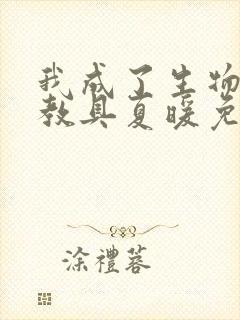 我成了生物
教具夏暖免
涂禮蓉